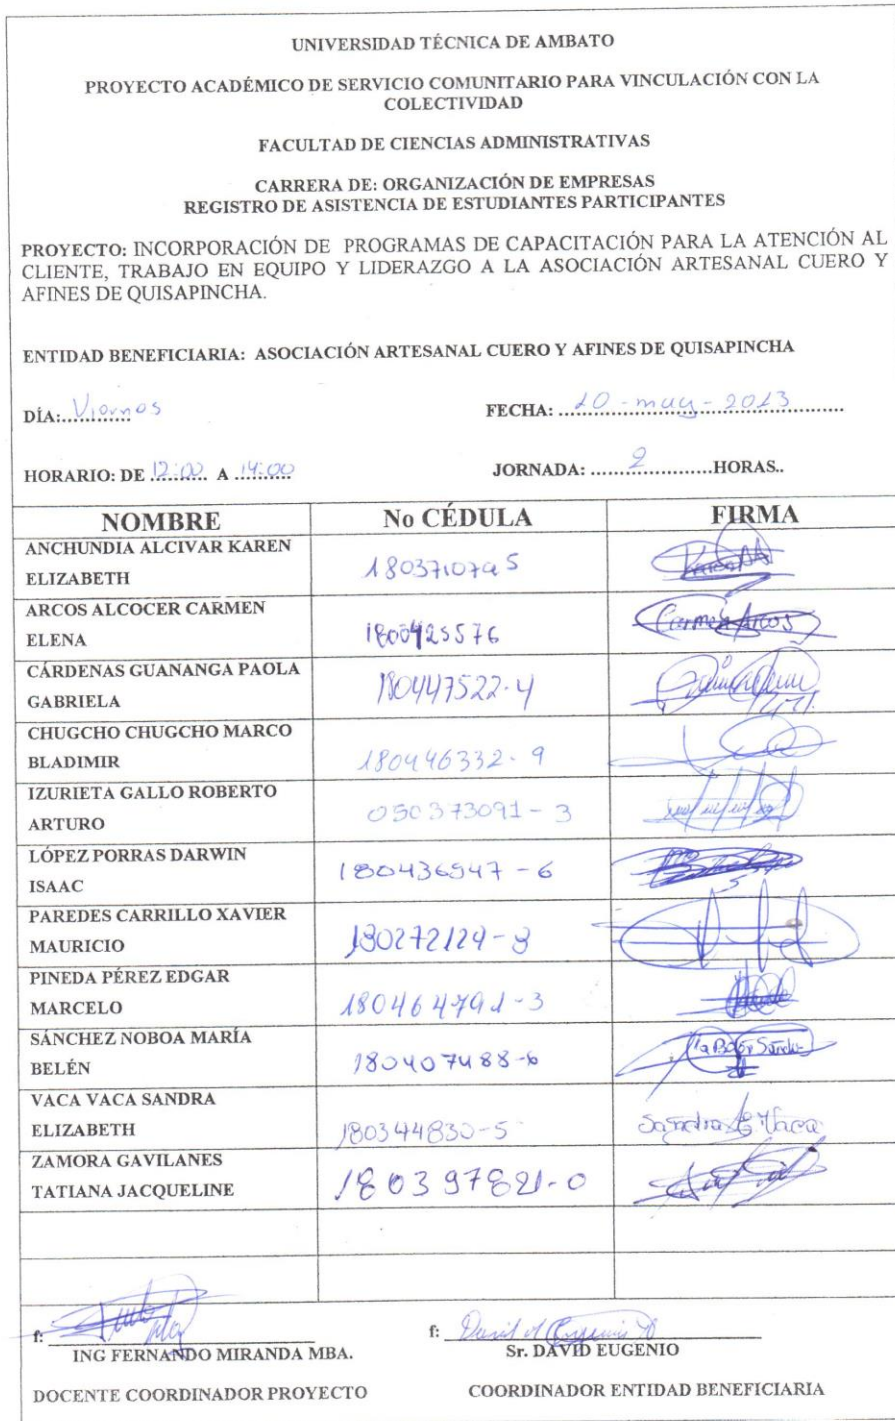 UNIVERSIDAD TÉCNICA DE AMBATO
PROYECTO ACADÉMICO DE SERVICIO COMUNITARIO PARA VINCULACIÓN CON LA
COLECTIVIDAD
FACULTAD DE CIENCIAS ADMINISTRATIVAS
CARRERA DE: ORGANIZACIÓN DE EMPRESAS
REGISTRO DE ASISTENCIA DE ESTUDIANTES PARTICIPANTES
PROYECTO: INCORPORACIÓN DE PROGRAMAS DE CAPACITACIÓN PARA LA ATENCIÓN AL
CLIENTE, TRABAJO EN EQUIPO Y LIDERAZGO A LA ASOCIACIÓN ARTESANAL CUERO Y
AFINES DE QUISAPINCHA.
ENTIDAD BENEFICIARIA: ASOCIACIÓN ARTESANAL CUERO Y AFINES DE QUISAPINCHA
DÍA: Viernes FECHA: 10 - may - 2013
HORARIO: DE 12:00 A 14:00 JORNADA: 2 HORAS..
NOMBRE No CÉDULA FIRMA
ANCHUNDIA ALCIVAR KAREN
ELIZABETH
ARCOS ALCOCER CARMEN
ELENA 1800425576 Carmen Arcos
CÁRDENAS GUANANGA PAOLA
GABRIELA 180447522-4
CHUGCHO CHUGCHO MARCO
BLADIMIR 180446332-9
IZURIETA GALLO ROBERTO
ARTURO 050373091-3
LÓPEZ PORRAS DARWIN
ISAAC 180436947-6
PAREDES CARRILLO XAVIER
MAURICIO
PINEDA PÉREZ EDGAR
MARCELO
SÁNCHEZ NOBOA MARÍA
BELÉN 180407488-6
VACA VACA SANDRA
ELIZABETH 180344830-5 Sandra E. Vaca
ZAMORA GAVILANES
TATIANA JACQUELINE 180397821-0
f: f: David Eugenio
ING FERNANDO MIRANDA MBA. Sr. DAVID EUGENIO
DOCENTE COORDINADOR PROYECTO COORDINADOR ENTIDAD BENEFICIARIA